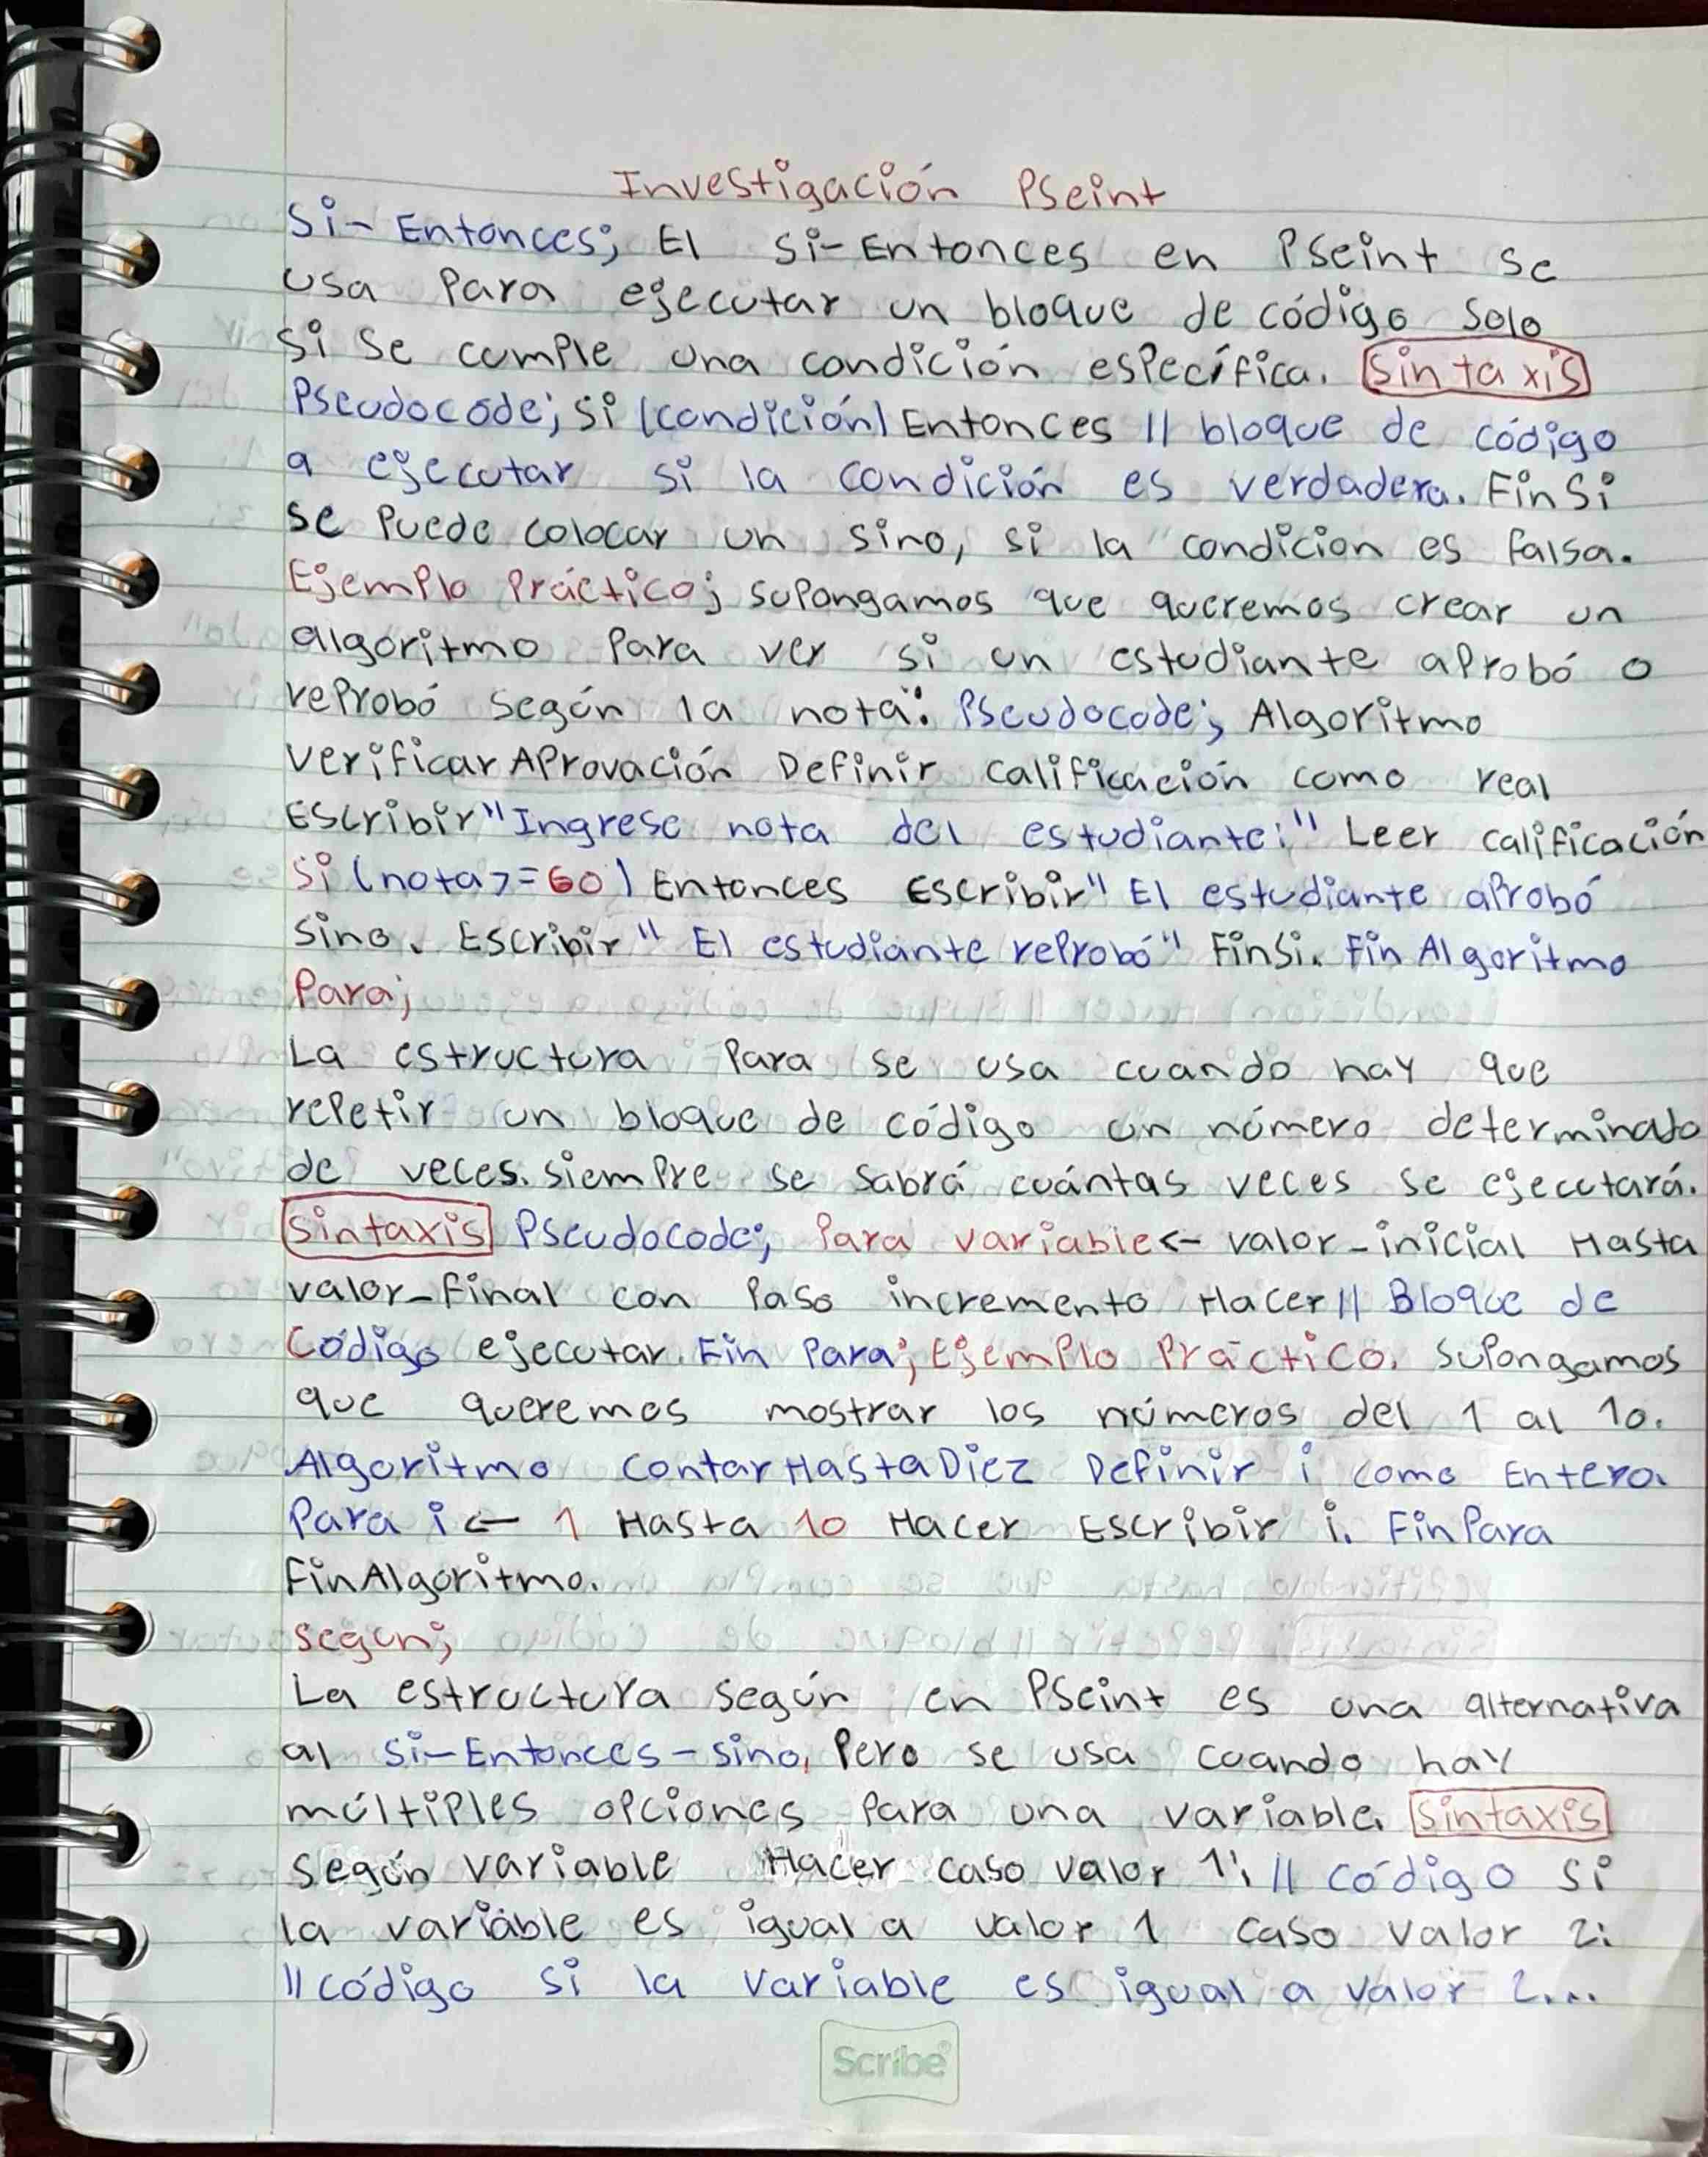 Investigación Pseint
Si-Entonces; El Si-Entonces en Pseint se
usa Para ejecutar un bloque de código solo
si se cumple una condición específica. Sintaxis
Pseudocode; Si (condición) Entonces // bloque de código
a ejecutar si la condición es verdadera. FinSi
se Puede colocar un sino, si la condicion es falsa.
Ejemplo Práctico; supongamos que queremos crear un
algoritmo Para ver si un estudiante aprobó o
reprobó según la nota: Pseudocode; Algoritmo
Verificar Aprovación Definir calificación como real
Escribir "Ingrese nota del estudiante:" Leer calificación
Si (nota >= 60) Entonces Escribir "El estudiante aprobó
Sino. Escribir "El estudiante reprobó" FinSi. Fin Algoritmo
Para;
La estructura Para se usa cuando hay que
repetir un bloque de código un número determinado
de veces. siempre se sabrá cuántas veces se ejecutará.
Sintaxis Pseudocode; Para variable <- valor-inicial Hasta
valor-final con Paso incremento Hacer // Bloque de
Código ejecutar. Fin Para; Ejemplo Práctico. Supongamos
que queremos mostrar los números del 1 al 10.
Algoritmo ContarHastaDiez Definir i como Entero.
Para i <- 1 Hasta 10 Hacer Escribir i. FinPara
FinAlgoritmo.
según;
La estructura según en Pseint es una alternativa
al Si-Entonces-sino, Pero se usa cuando hay
múltiples opciones Para una variable. Sintaxis
Según variable Hacer caso valor 1: // código si
la variable es igual a valor 1 caso valor 2:
// código si la variable es igual a valor 2...
Scribe